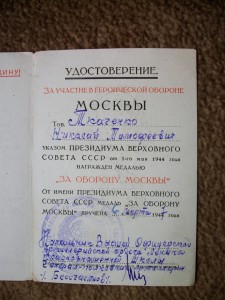 УДОСТОВЕРЕНИЕ.
ЗА УЧАСТИЕ В ГЕРОИЧЕСКОЙ ОБОРОНЕ
МОСКВЫ
Тов. Ткаченко
Николай Тимофеевич
УКАЗОМ ПРЕЗИДИУМА ВЕРХОВНОГО
СОВЕТА СССР от 1-го мая 1944 года
НАГРАЖДЕН МЕДАЛЬЮ
„ЗА ОБОРОНУ МОСКВЫ"
ОТ ИМЕНИ ПРЕЗИДИУМА ВЕРХОВНОГО
СОВЕТА СССР МЕДАЛЬ „ЗА ОБОРОНУ
МОСКВЫ" ВРУЧЕНА марта
Начальник Высшей Офицерской
Артиллерийской ордена Ленина
Краснознаменной Школы